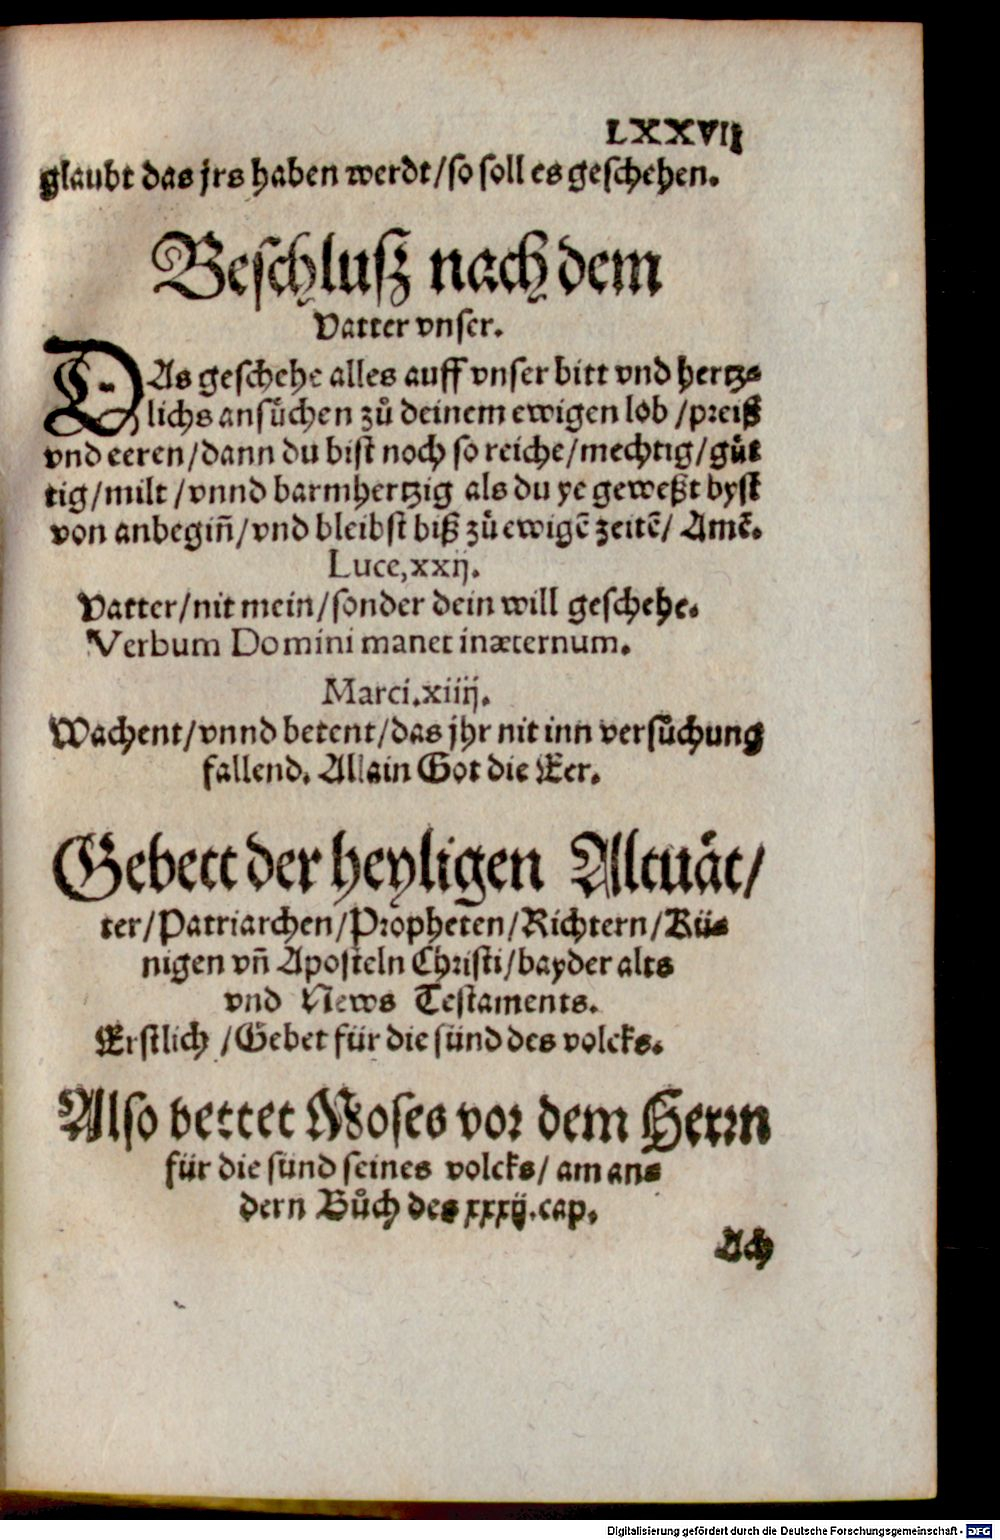 LXXVIJ
glaubt das jrs haben werdt/so soll es geschehen.
Beschlusz nach dem
Vatter vnser.
DAs geschehe alles auff vnser bitt vnd hertz⸗
lichs ansůchen zů deinem ewigen lob /preiß
vnd eeren/dann du bist noch so reiche/mechtig/gůt
tig/milt /vnnd barmhertzig als du ye geweßt byst
von anbegin̄/vnd bleibst biß zů ewigē zeitē/ Amē.
Luce,xxij.
Vatter/nit mein/sonder dein will geschehe.
Verbum Domini manet inæternum.
Marci.xiiij.
Wachent/vnnd betent/das jhr nit inn versůchung
fallend. Allain Got die Eer.
Gebett der heyligen Altuåt/
ter/Patriarchen/Propheten/Richtern/Kü⸗
nigen vn̄ Aposteln Christi/bayder alts
vnd News Testaments.
Erstlich /Gebet für die sünd des volcks.
Also bettet Moses vor dem Herrn
für die sünd seines volcks/ am an⸗
dern Bůch des xxxij.cap.
Ach
Digitalisierung gefördert durch die Deutsche Forschungsgemeinschaft - DFG